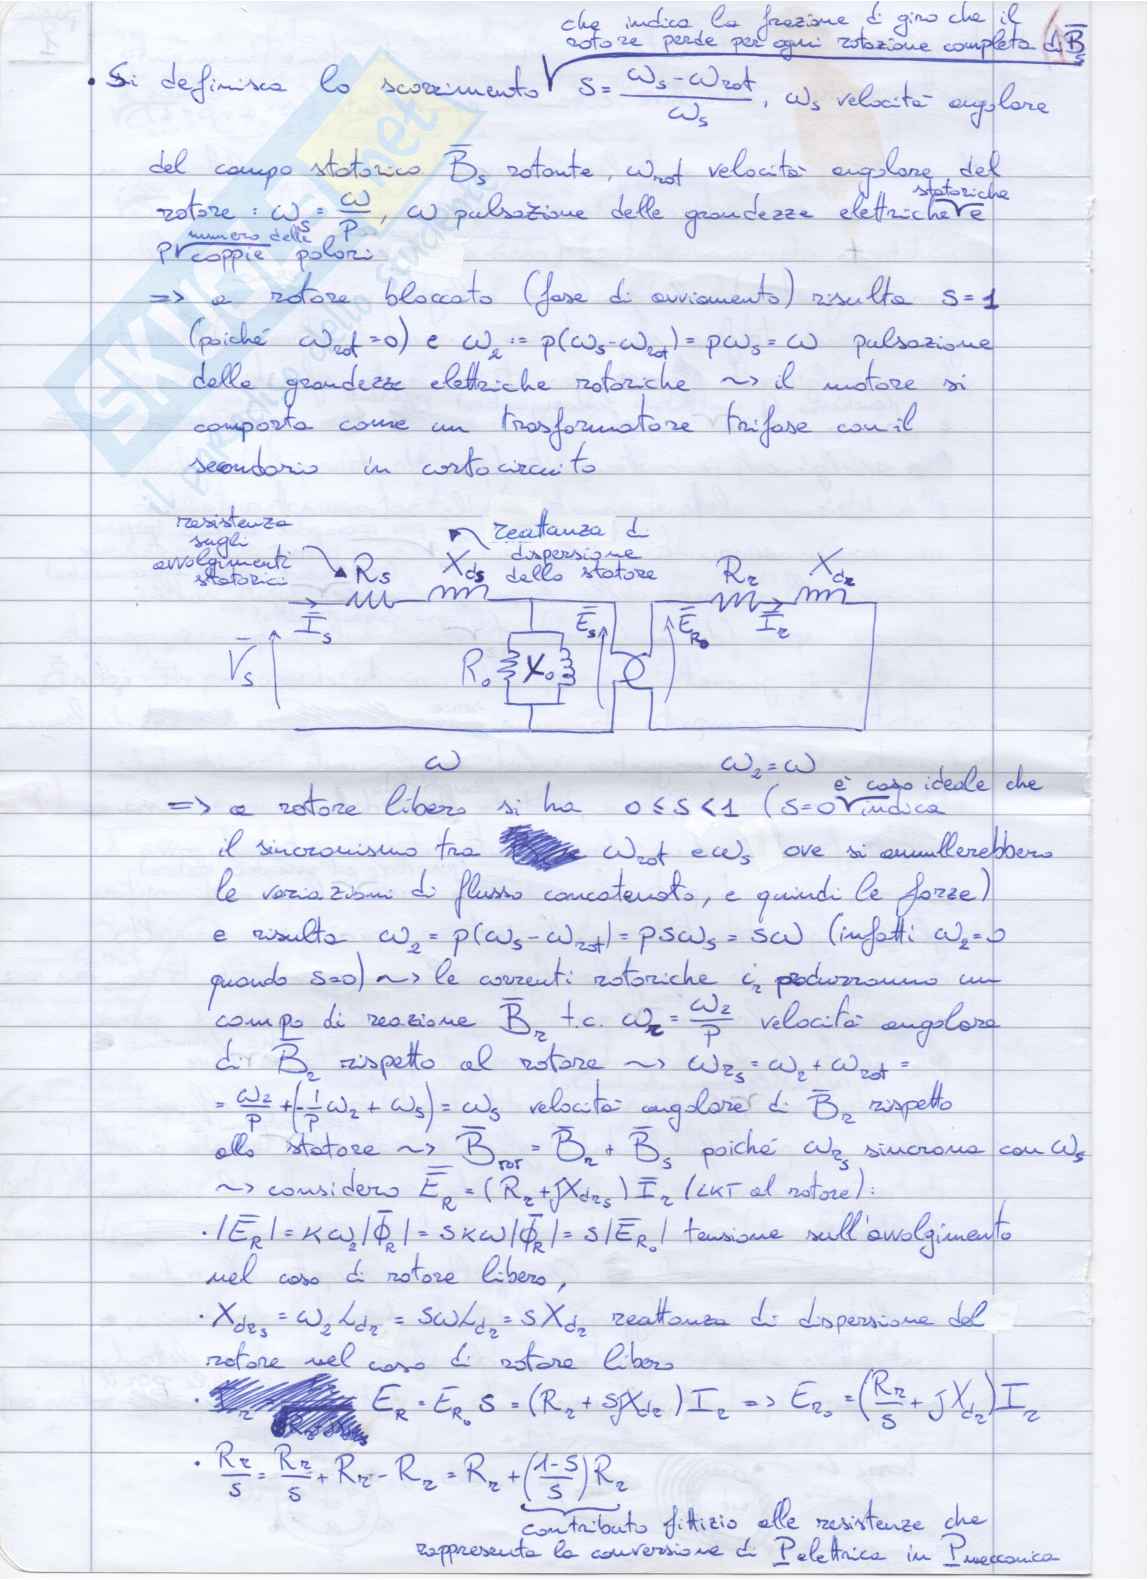 che indica la frazione di giro che il
rotore perde per ogni rotazione completa di B̄s
• Si definisca lo scorrimento s = (ωs - ωrot)/ωs , ωs velocità angolare
del campo statorico B̄s rotante, ωrot velocità angolare del
rotore : ωs = ω/p , ω pulsazione delle grandezze elettriche statoriche e
p numero delle coppie polari
=> a rotore bloccato (fase di avviamento) risulta s=1
(poiché ωrot=0) e ω2 := p(ωs-ωrot) = pωs = ω pulsazione
delle grandezze elettriche rotoriche ~> il motore si
comporta come un trasformatore trifase con il
secondario in cortocircuito
resistenza
sugli
avvolgimenti
statorici
reattanza di
dispersione
dello statore
Rs Xds Rr Xdr
Īs Ēs ĒR0 Īr
V̄s R0 X0
ω ω2=ω
=> a rotore libero si ha 0≤s<1 (s=0 è caso ideale che indica
il sincronismo tra ωrot e ωs ove si annullerebbero
le variazioni di flusso concatenato, e quindi le forze)
e risulta ω2 = p(ωs-ωrot) = psωs = sω (infatti ω2=0
quando s=0) ~> le correnti rotoriche ir produrranno un
campo di reazione B̄r t.c. ωr = ω2/p velocità angolare
di B̄r rispetto al rotore ~> ωrs = ωr + ωrot =
= ω2/p + (-1/p ω2 + ωs) = ωs velocità angolare di B̄r rispetto
allo statore ~> B̄TOT = B̄r + B̄s poiché ωrs sincrona con ωs
~> considero ĒR = (Rr + jXdrs) Īr (LKT al rotore):
· |ĒR| = Kω2|Φ̄R| = sKω|Φ̄R| = s|ĒR0| tensione sull'avvolgimento
nel caso di rotore libero,
· Xdrs = ω2 Ldr = sωLdr = sXdr reattanza di dispersione del
rotore nel caso di rotore libero
· ĒR = ĒR0 s = (Rr + sjXdr) Ir => Ēr0 = (Rr/s + jXdr) Ir
· Rr/s = Rr/s + Rr - Rr = Rr + ((1-s)/s) Rr
contributo fittizio alle resistenze che
rappresenta la conversione di Pelettrica in Pmeccanica
SKUOLA.net